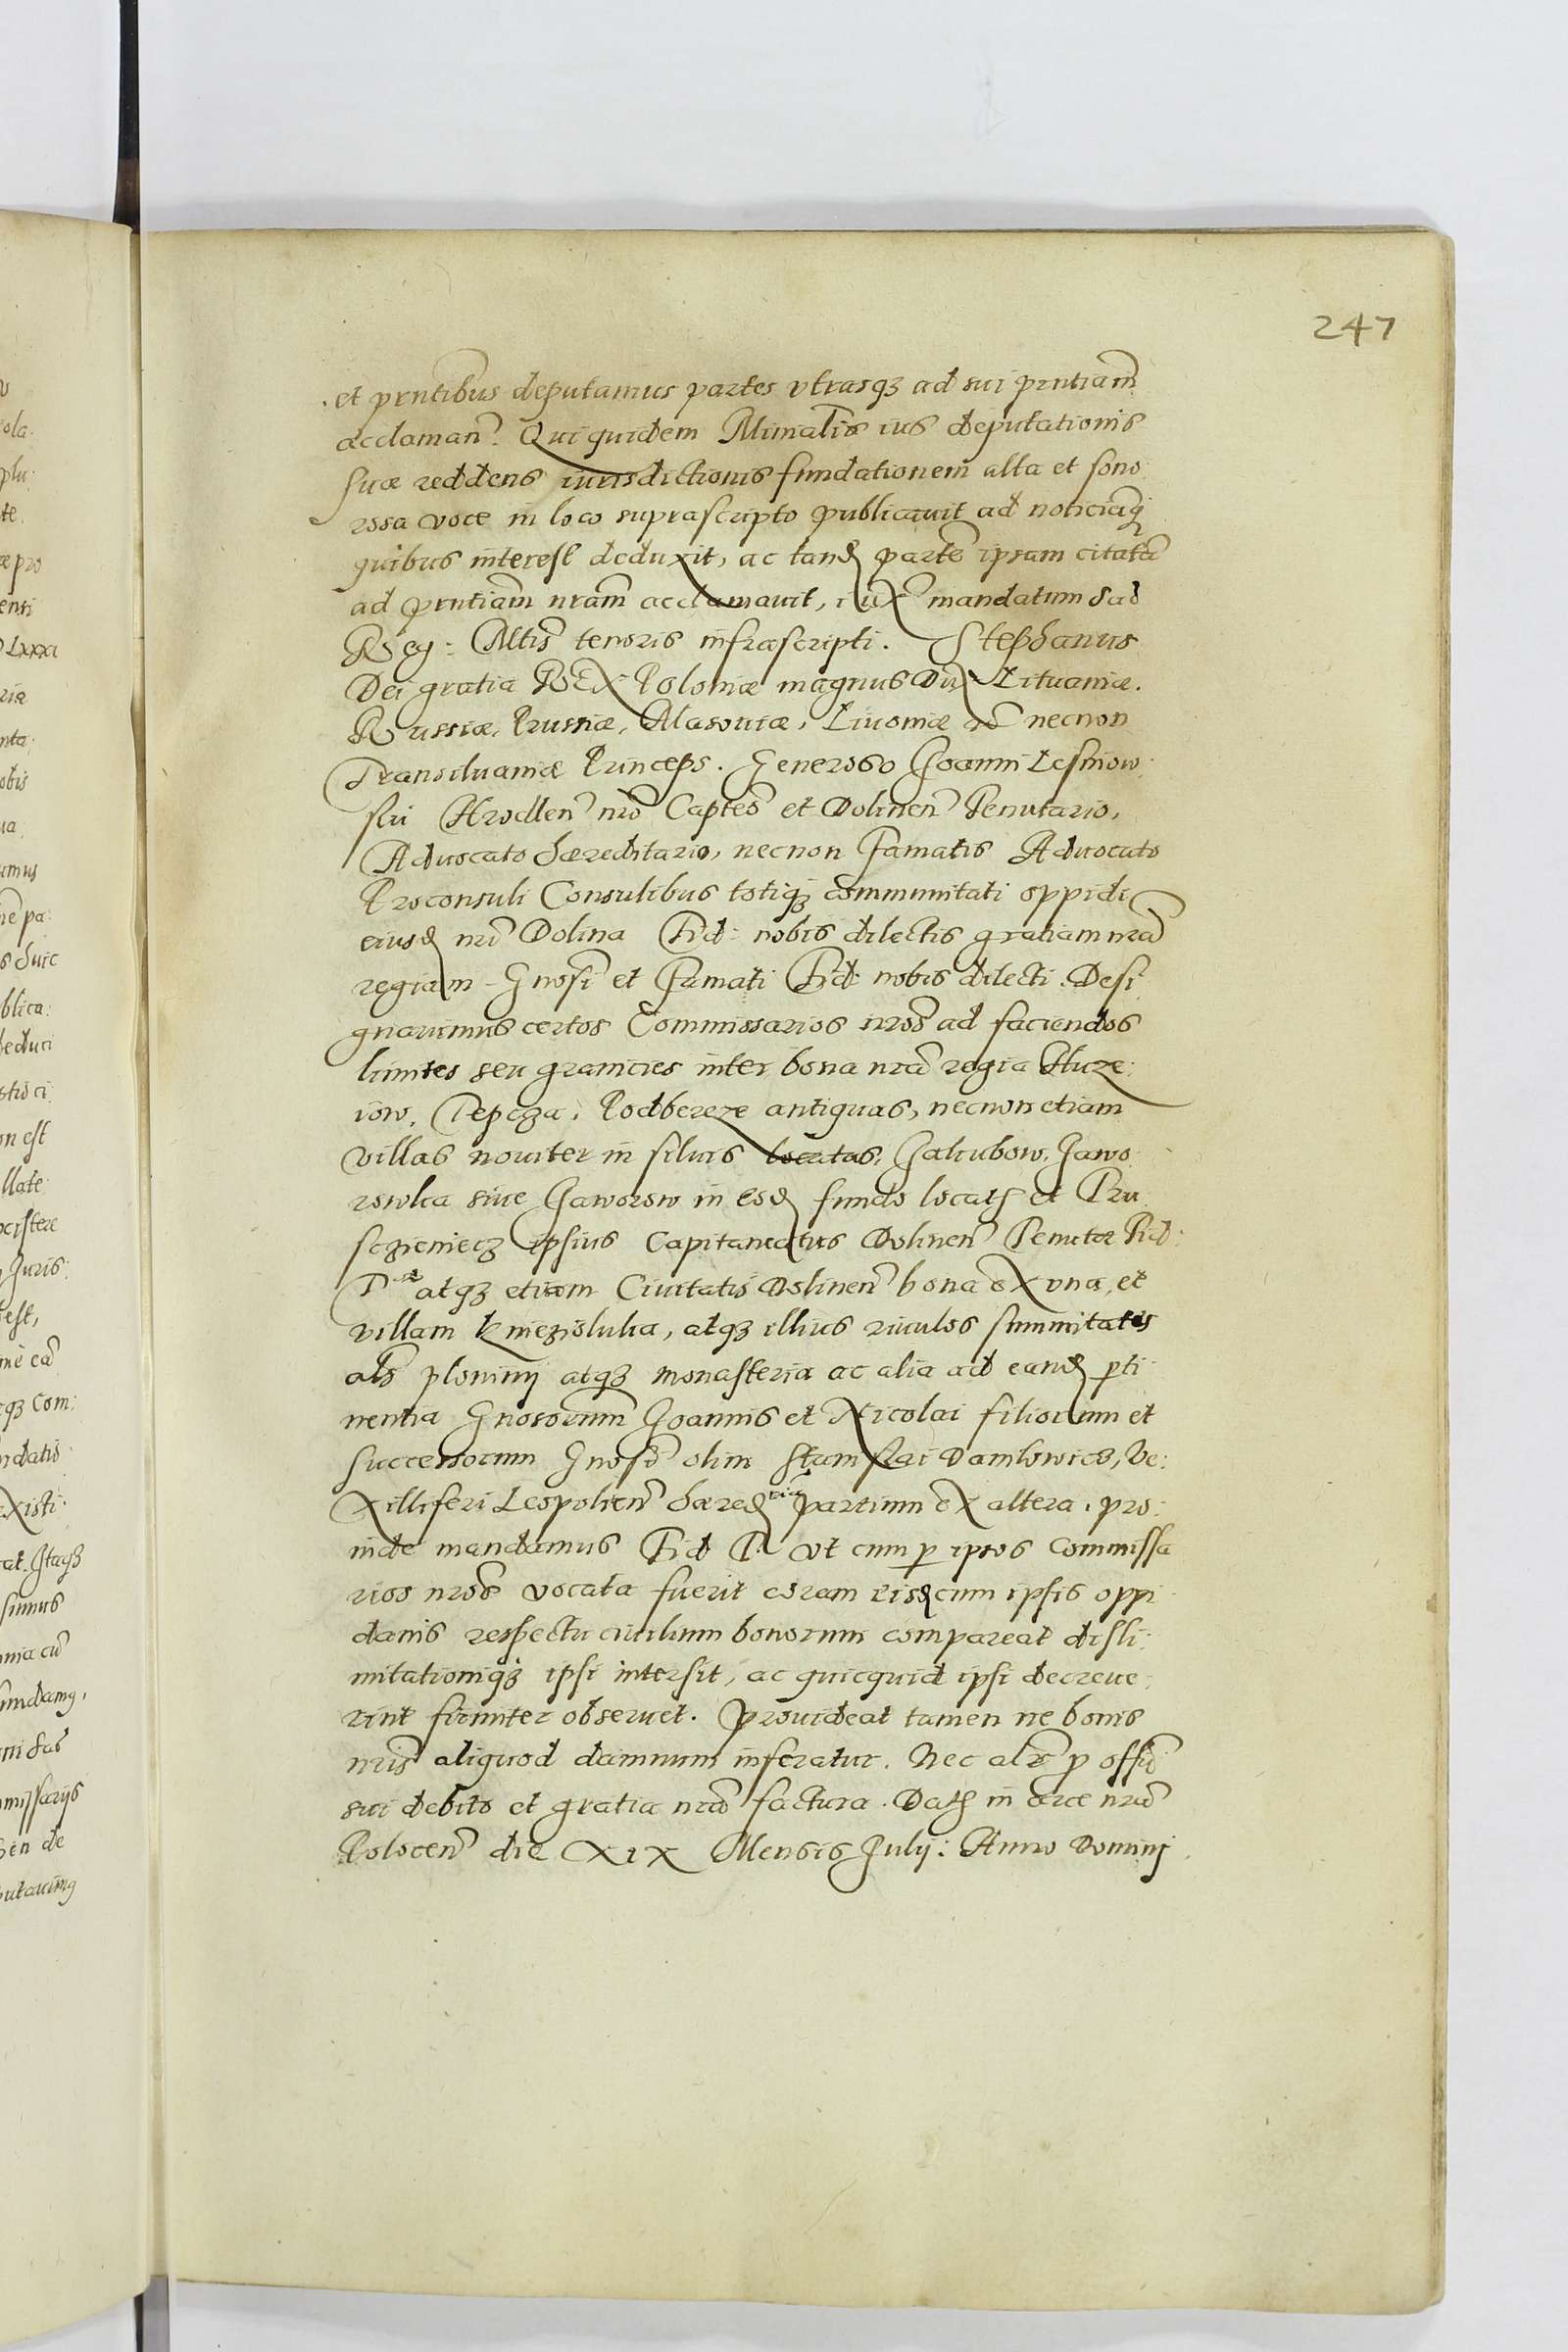 247
et prntibus deputamus partes vtrasqȝ ad sui prntiam
acclaman. Qui quidem Minialis ius deputationis
suæ reddens iurisdictionis fundationem alta et sono
rosa voce in loco suprascripto publicavit ad noticiāqȝ
quibus interest deduxit, ac tand partē ipsam citatā
ad prntiam nram acclamavit, iux mandatum Sac
Reg: Mtis tenoris infrascripti. Stephanus
Dei gratia REX Poloniæ magnus Dux Lituaniæ.
Russiæ, Prussiæ, Masouiæ, Liuoniæ necnon
Transiluaniæ Princeps. Generoso Joanni Lesniow
ski Hrodlen nrō Captēo et Dolinen Tenutario,
Aduocato hæreditario, necnon Famatis Aduocato
Proconsuli Consulibus totiqȝ communitati oppidi
eiusd nri Dolina Fid: nobis dilectis gratiam nrā
regiam Gnosi et Famati Fid: nobis dilecti. Desi
gnauimus certos Commissarios nros ad faciendos
limites seu granicies inter bona nrā regia Huze
iow, Tepcza, Podbereze antiquas, necnon etiam
villas nouiter in siluis locatas, Jakubow, Jawo
rowka siue Jaworow in eod fundo locatȝ et Tru
sczieniecz ipsius Capitaneatus Dolinen Tenutæ Fid:
T atqȝ etiam Ciuitatis Dolinen bona ex vna, et
villam Kniezioluka, atqȝ illius riuulos summitates
als ploniny atqȝ monasteria ac alia ad eand prti
nentia Gnosorum Joannis et Nicolai filiorum et
successorum Gnosi olim Stanislai Danilowicz, Ve:
xilliferi Leopolien hæred partium ex altera. pro:
inde mandamus Fid T. vt cum p ipsos commissa
rios nros vocata fuerit coram eisd cum ipsis oppi
danis respectu ciuilium bonorum compareat disli:
mitationiqȝ ipsi intersit, ac quicquid ipsi decreue:
rint firmiter obseruet. Prouideat tamen ne bonis
nris aliquod damnum inferatur. Nec alr p offi
sui debito et gratia nrā factura. Datȝ in arce nrā
Polocen die XIX Mensis Julij: Anno Dominj